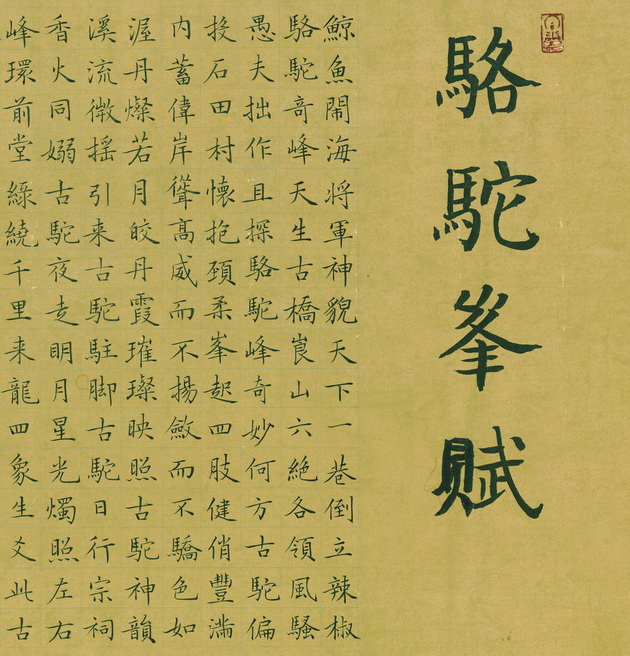 駱駝峯賦
鯨魚鬧海将軍神貌天下一巷倒立辣椒
駱駝奇峰天生古橋崀山六絶各領風騷
愚夫拙作且探駱駝峰奇妙何方古駝偏
投石田村懷抱頸柔峯起四肢健俏豐滿
内蓄偉岸聳髙威而不揚斂而不驕色如
渥丹燦若月皎丹霞璀璨映照古駝神韻
溪流微揺引来古駝駐脚古駝日行宗祠
香火同嫋古駝夜走明月星光燭照左右
峰環前堂緑繞千里来龍四象生爻此古